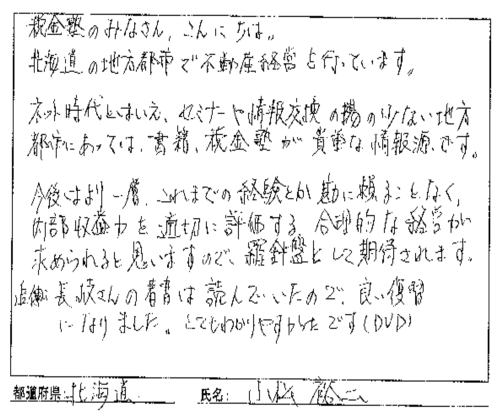 税金塾のみなさん、こんにちは。
北海道の地方都市で不動産経営を行っています。
ネット時代とはいえ、セミナーや情報交換の場の少ない地方
都市にあっては、書籍、税金塾が貴重な情報源です。
今後はより一層、これまでの経験とか勘に頼ることなく、
内部収益力を適切に評価する、合理的な経営が
求められると思いますので、羅針盤として期待されます。
追伸 長岐さんの著書は読んでいたので、良い復習
になりました。とてもわかりやすかったです(DVD)
都道府県: 北海道 氏名: